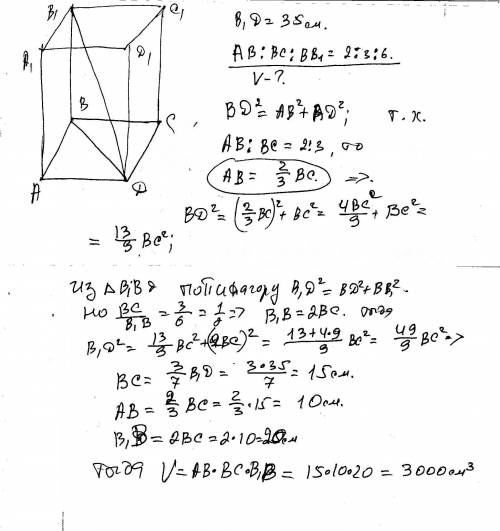 B₁ C₁
A₁ D₁
B C
A D
B₁D = 35 см.
AB : BC : BB₁ = 2:3:6.
V-?
BD² = AB² + AD²; т.к.
AB : BC = 2:3, то
AB = 2/3 BC. =>.
BD² = (2/3 BC)² + BC² = 4BC²/9 + BC² =
= 13/9 BC²;
Из △B₁BD по Пифагору B₁D² = BD² + BB₁².
Но BC/B₁B = 3/6 = 1/2 => B₁B = 2BC. тогда
B₁D² = 13/9 BC² + (2BC)² = 13+4·9/9 BC² = 49/9 BC² =>
BC = 3/7 B₁D = 3·35/7 = 15 см.
AB = 2/3 BC = 2/3 · 15 = 10 см.
B₁B = 2BC = 2·10 = 20 см
тогда V = AB · BC · B₁B = 15·10·20 = 3000 см³